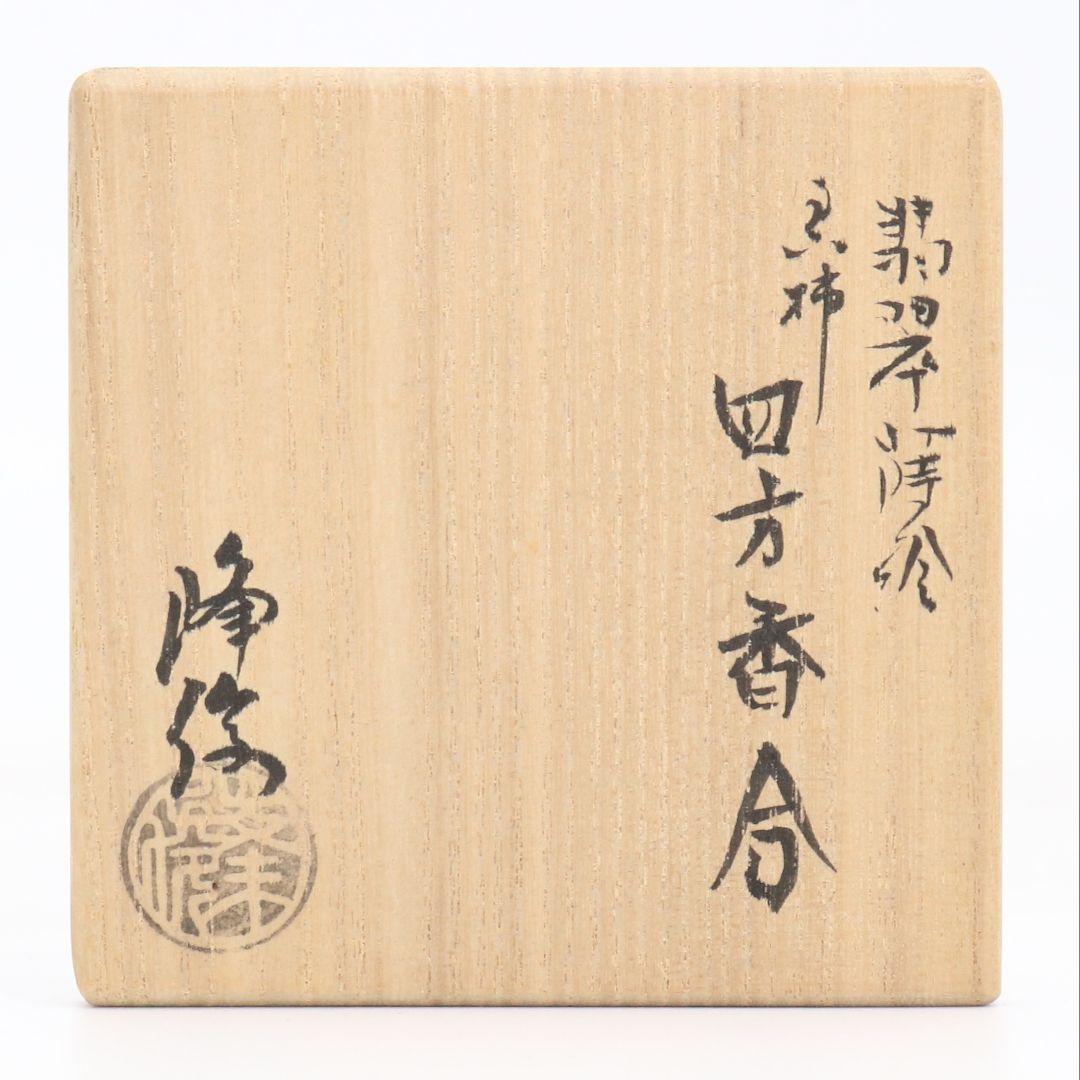 翡翠蒔絵
黒柿
四方香合
峰修